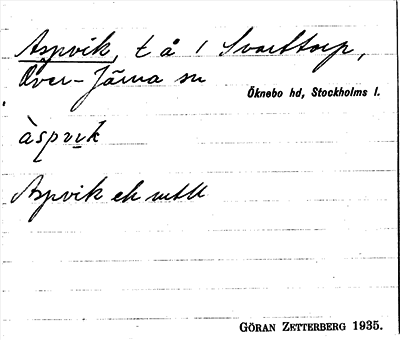 Aspvik, t å 1 Svarttorp,
Över-Järna sn
Öknebo hd, Stockholms l.
àspvik
Aspvik ek
GÖRAN ZETTERBERG 1935.